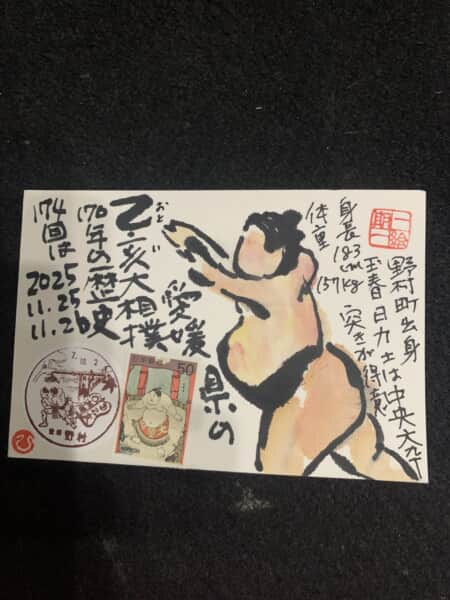 野村町出身
玉春日力士は中央大卒
突きが得意
身長183cm
体重157kg
愛媛県の
乙亥大相撲
おと い
170年の歴史
174回は2025
11.25
11.26
日本郵便
50
愛媛
野村
ひ